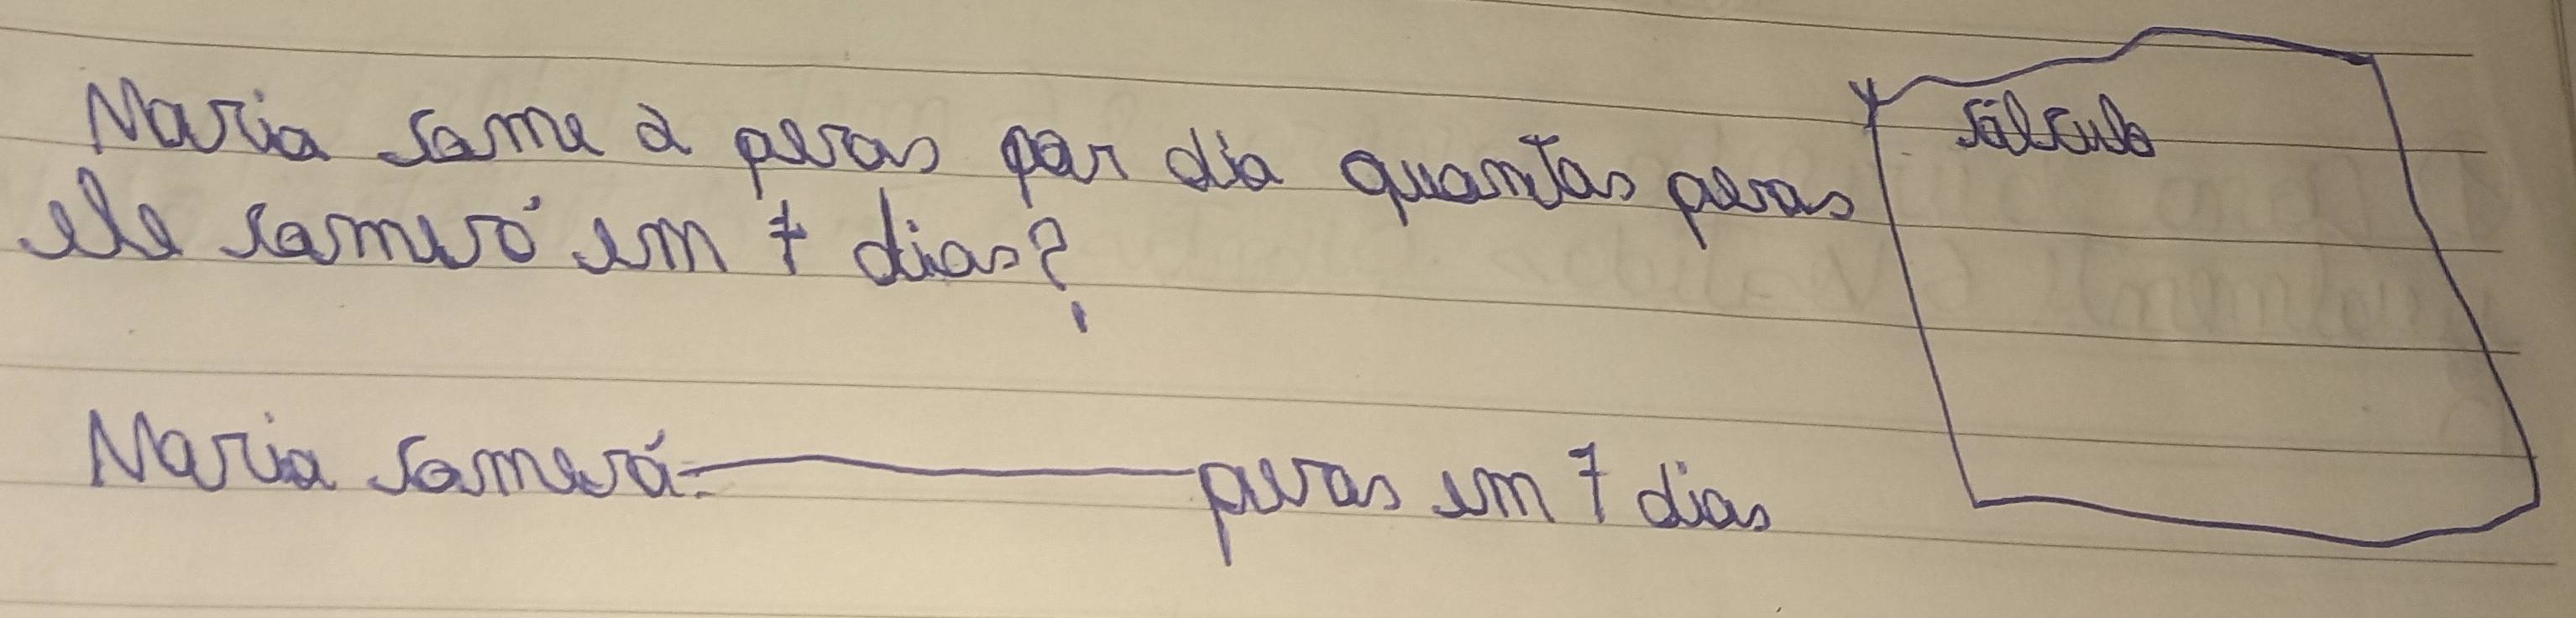 Maria come 2 peras por dia quantas peras
ele comerá em 7 dias?
Maria comerá: peras em 7 dias
cálculo